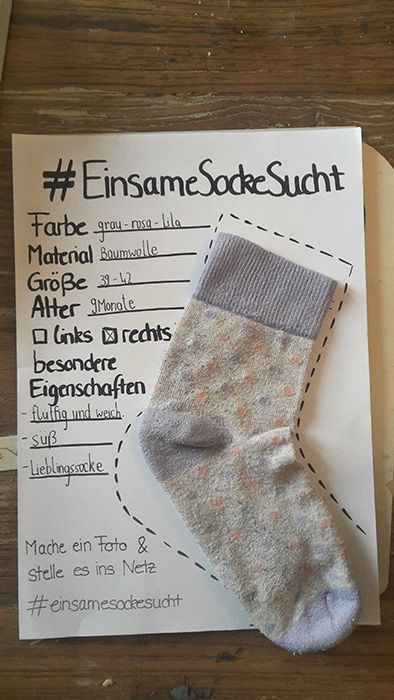 #EinsameSockeSucht
Farbe grau-rosa-lila
Material Baumwolle
Größe 39-42
Alter 9Monate
☐ links ☒ rechts
besondere
Eigenschaften
- fluffig und weich
- süß
- Lieblingssocke
Mache ein Foto &
stelle es ins Netz
#einsamesockesucht